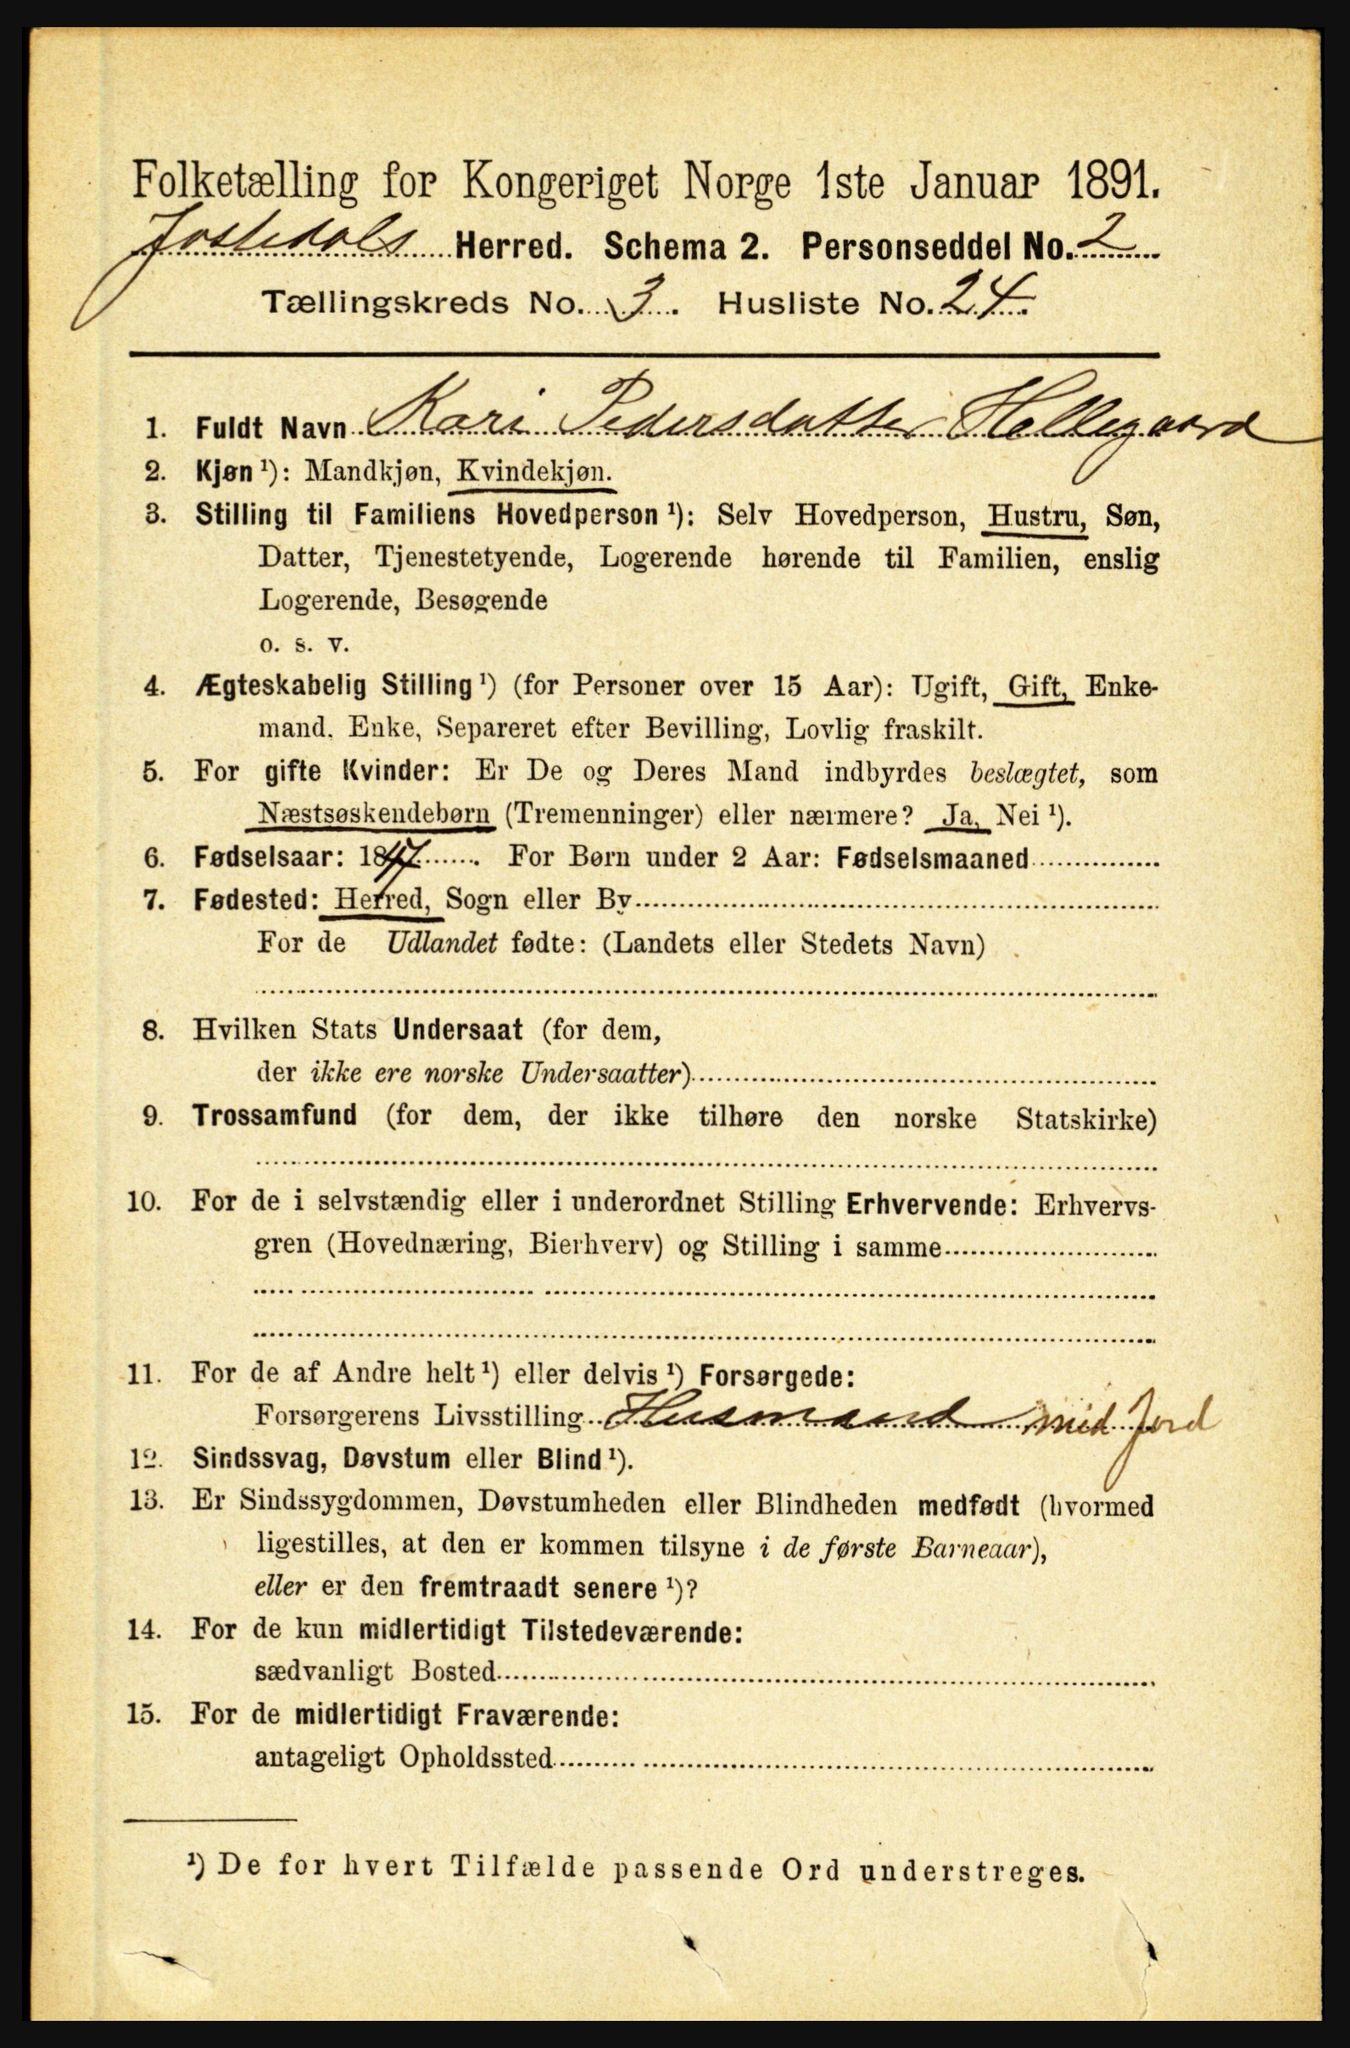 Folketælling for Kongeriget Norge 1ste Januar 1891.
Jostedals Herred. Schema 2. Personseddel No. 2
Tællingskreds No. 3. Husliste No. 24.
1. Fuldt Navn Kari Pedersdatter Hellegaard
2. Kjøn ¹): Mandkjøn, Kvindekjøn.
3. Stilling til Familiens Hovedperson ¹): Selv Hovedperson, Hustru, Søn,
Datter, Tjenestetyende, Logerende hørende til Familien, enslig
Logerende, Besøgende
o. s. v.
4. Ægteskabelig Stilling ¹) (for Personer over 15 Aar): Ugift, Gift, Enke-
mand, Enke, Separeret efter Bevilling, Lovlig fraskilt.
5. For gifte Kvinder: Er De og Deres Mand indbyrdes beslægtet, som
Næstsøskendebørn (Tremenninger) eller nærmere? Ja, Nei ¹).
6. Fødselsaar: 1847. For Børn under 2 Aar: Fødselsmaaned
7. Fødested: Herred, Sogn eller By
For de Udlandet fødte: (Landets eller Stedets Navn)
8. Hvilken Stats Undersaat (for dem,
der ikke ere norske Undersaatter)
9. Trossamfund (for dem, der ikke tilhøre den norske Statskirke)
10. For de i selvstændig eller i underordnet Stilling Erhvervende: Erhvervs-
gren (Hovednæring, Bierhverv) og Stilling i samme
11. For de af Andre helt ¹) eller delvis ¹) Forsørgede:
Forsørgerens Livsstilling Husmand med Jord
12. Sindssvag, Døvstum eller Blind ¹).
13. Er Sindssygdommen, Døvstumheden eller Blindheden medfødt (hvormed
ligestilles, at den er kommen tilsyne i de første Barneaar),
eller er den fremtraadt senere ¹)?
14. For de kun midlertidigt Tilstedeværende:
sædvanligt Bosted
15. For de midlertidigt Fraværende:
antageligt Opholdssted
¹) De for hvert Tilfælde passende Ord understreges.